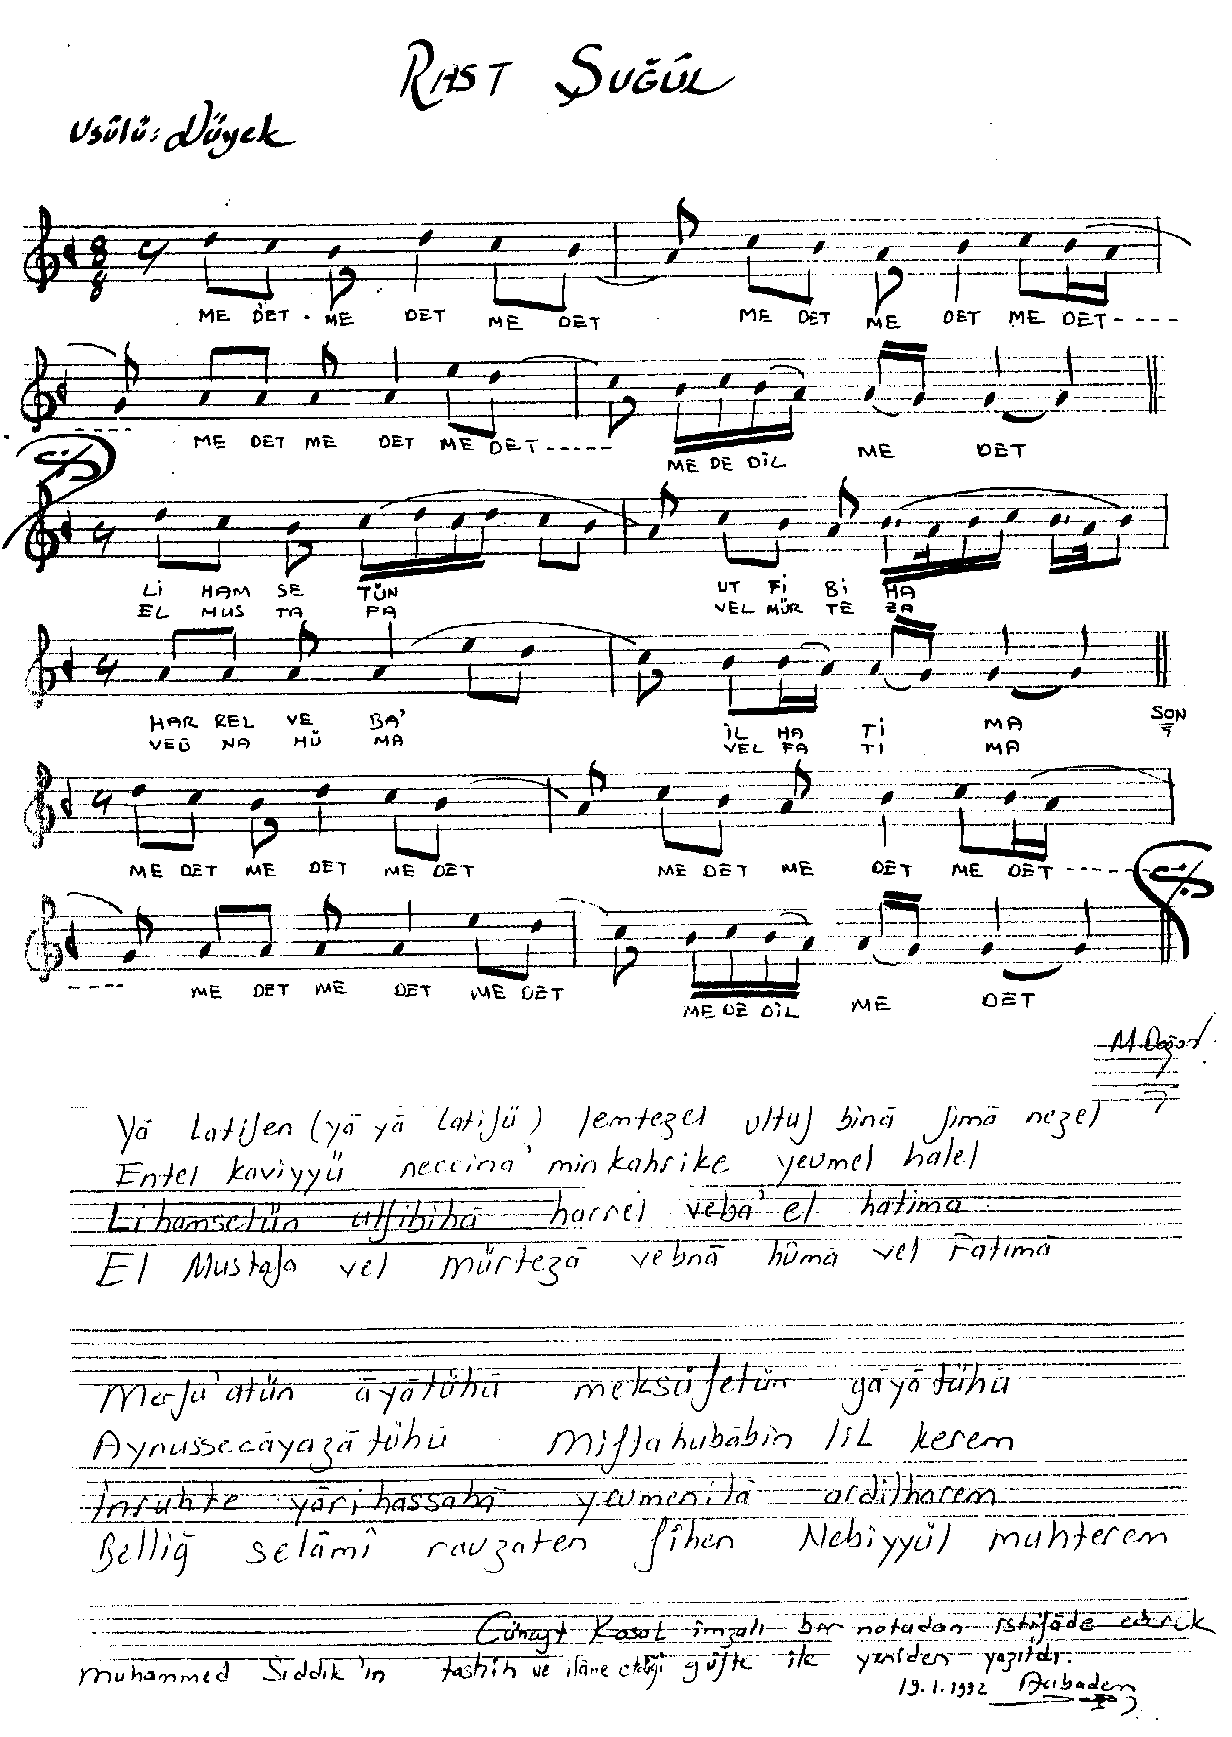 RAST ŞUĞÛL
Usûlü: Düyek
ME DET ME DET ME DET ME DET ME DET ME DET----
---- ME DET ME DET ME DET----- ME DE DİL ME DET
Lİ HAM SE TÜN UT Fİ Bİ HA
EL MUS TA FA VEL MÜR TE ZA
HAR REL VE BA' İL HA Tİ MA SON
VEB NA HÜ MA VEL FA TI MA
ME DET ME DET ME DET ME DET ME DET ME DET-----
---- ME DET ME DET ME DET ME DE DİL ME DET
Yā latifen (yā yā latifü) lemtezel ultuf binā fimā nezel
Entel kaviyyü neccina' min kahrike yevmel halel
Lihamsetün utfibihā harrel veba' el hatima
El Mustafa vel mürtezā vebnā hüma vel Fatımā
Merfu'atün āyātühü meksûfetün gāyātühü
Aynussecāyazātühü Miftahubābin lil kerem
İnruhte yārihassabā yevmenilā ardilharem
Belliğ selāmî ravzaten fîhen Nebiyyül muhterem
Cüneyt Kosal imzalı bir notadan istifāde ederek
Muhammed Sıddık'ın tashih ve ilāve ettiği güfte ile yeniden yazıldı.
19.1.1992 Acıbadem